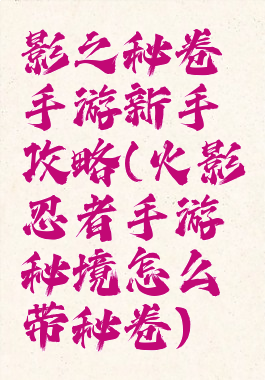 影之秘卷
手游新手
攻略(火影
忍者手游
秘境怎么
带秘卷)